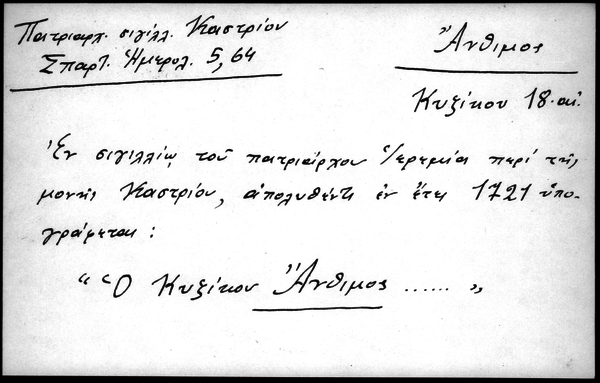 Πατριαρχ. σιγίλλ. Καστρίου
Σπαρτ. Ἡμερολ. 5, 64
Ἄνθιμος
Κυζίκου 18. αἰ.
Ἐν σιγιλλίῳ τοῦ πατριάρχου Ἱερεμία περί τῆς
μονῆς Καστρίου, ἀπολυθέντι ἐν ἔτει 1721 ὑπο-
γράφεται :
“ Ὁ Κυζίκου Ἄνθιμος ...... „